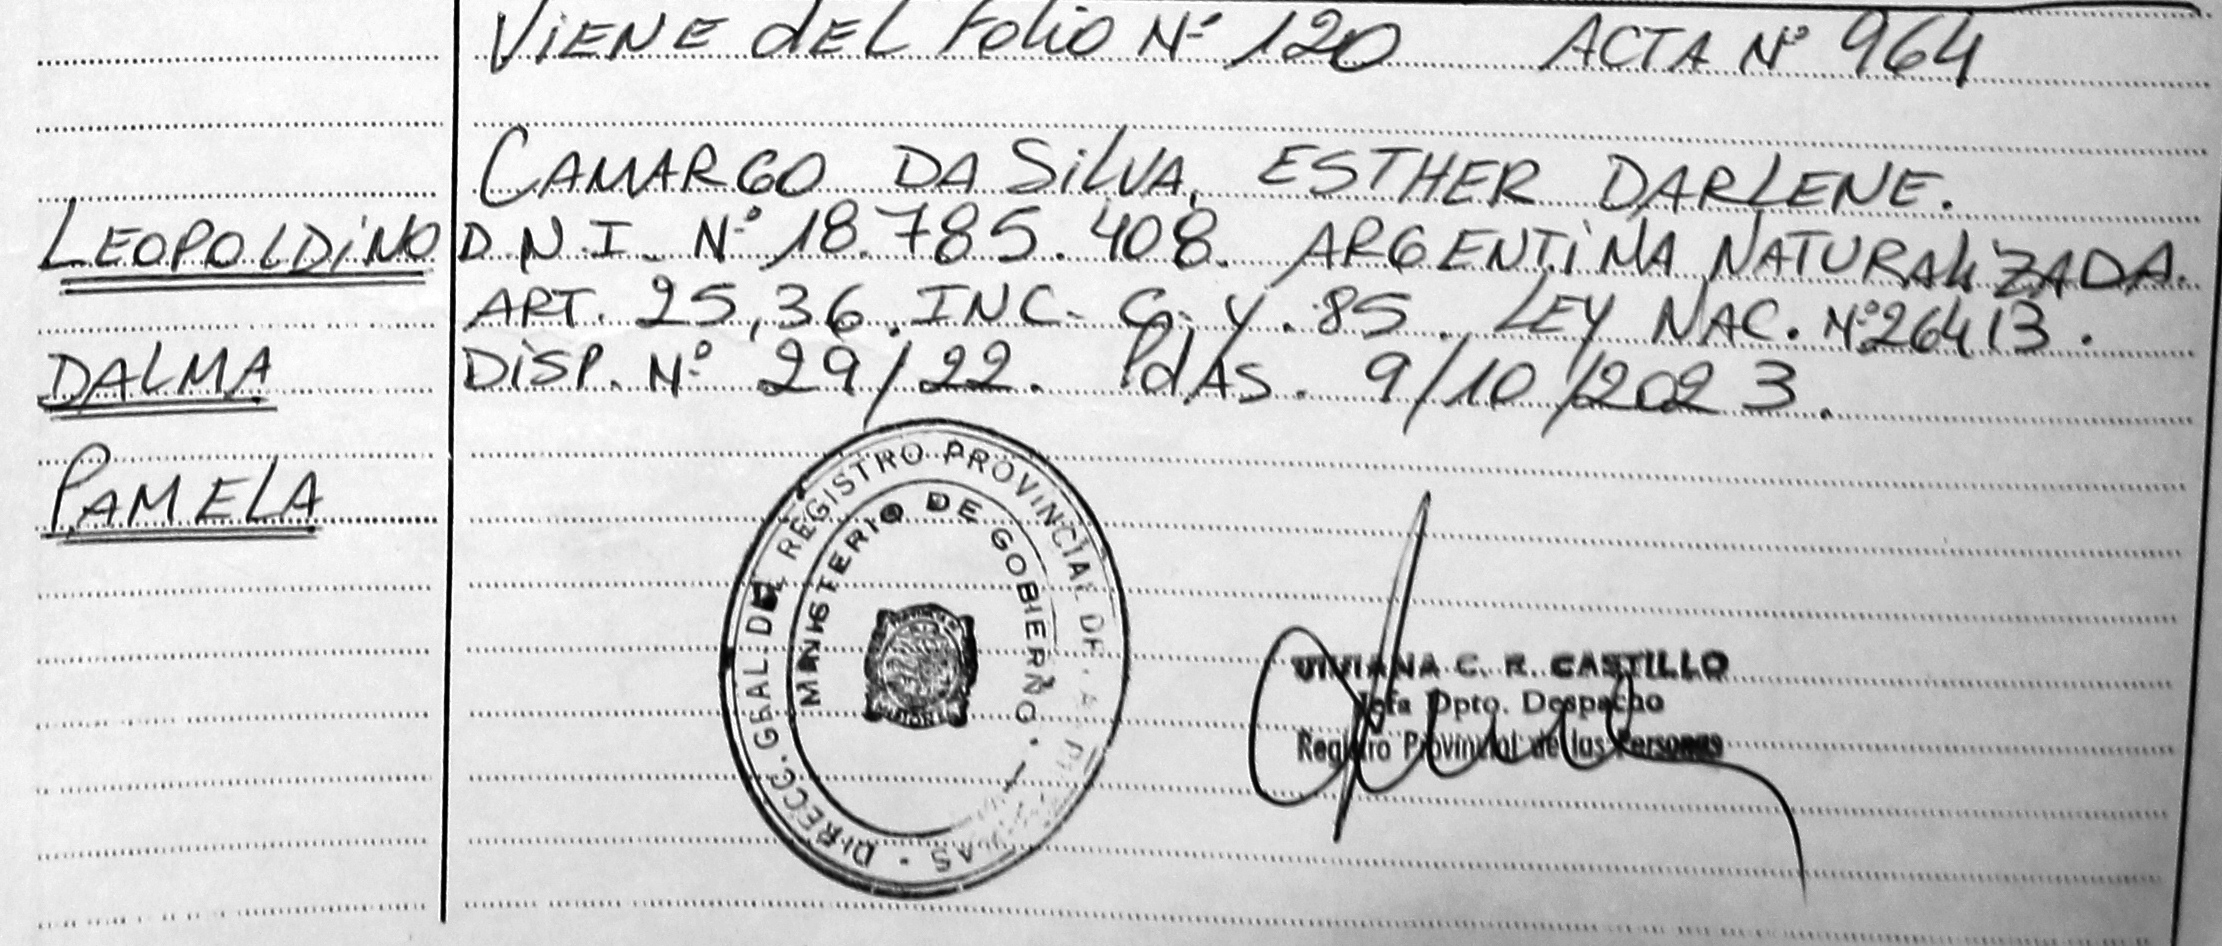 ViENE dEL Folio Nº 120 ACTA Nº 964
CAMARGO DA SiLVA, ESTHER DARLENE.
LEOPOLDiNO
D.N.I. Nº 18.785.408. ARGENTiNA NATURALiZADA.
ART. 25,36. INC. C. y. 85. LEY NAC. Nº26413.
DALMA
DiSP. Nº 29/22. PdAS. 9/10/2023.
PAMELA
DIRECC. GRAL. DEL REGISTRO PROVINCIAL DE
MINISTERIO DE GOBIERNO.
VIVIANA C. R. CASTILLO
Jefa Dpto. Despacho
Registro Provincial de las Personas